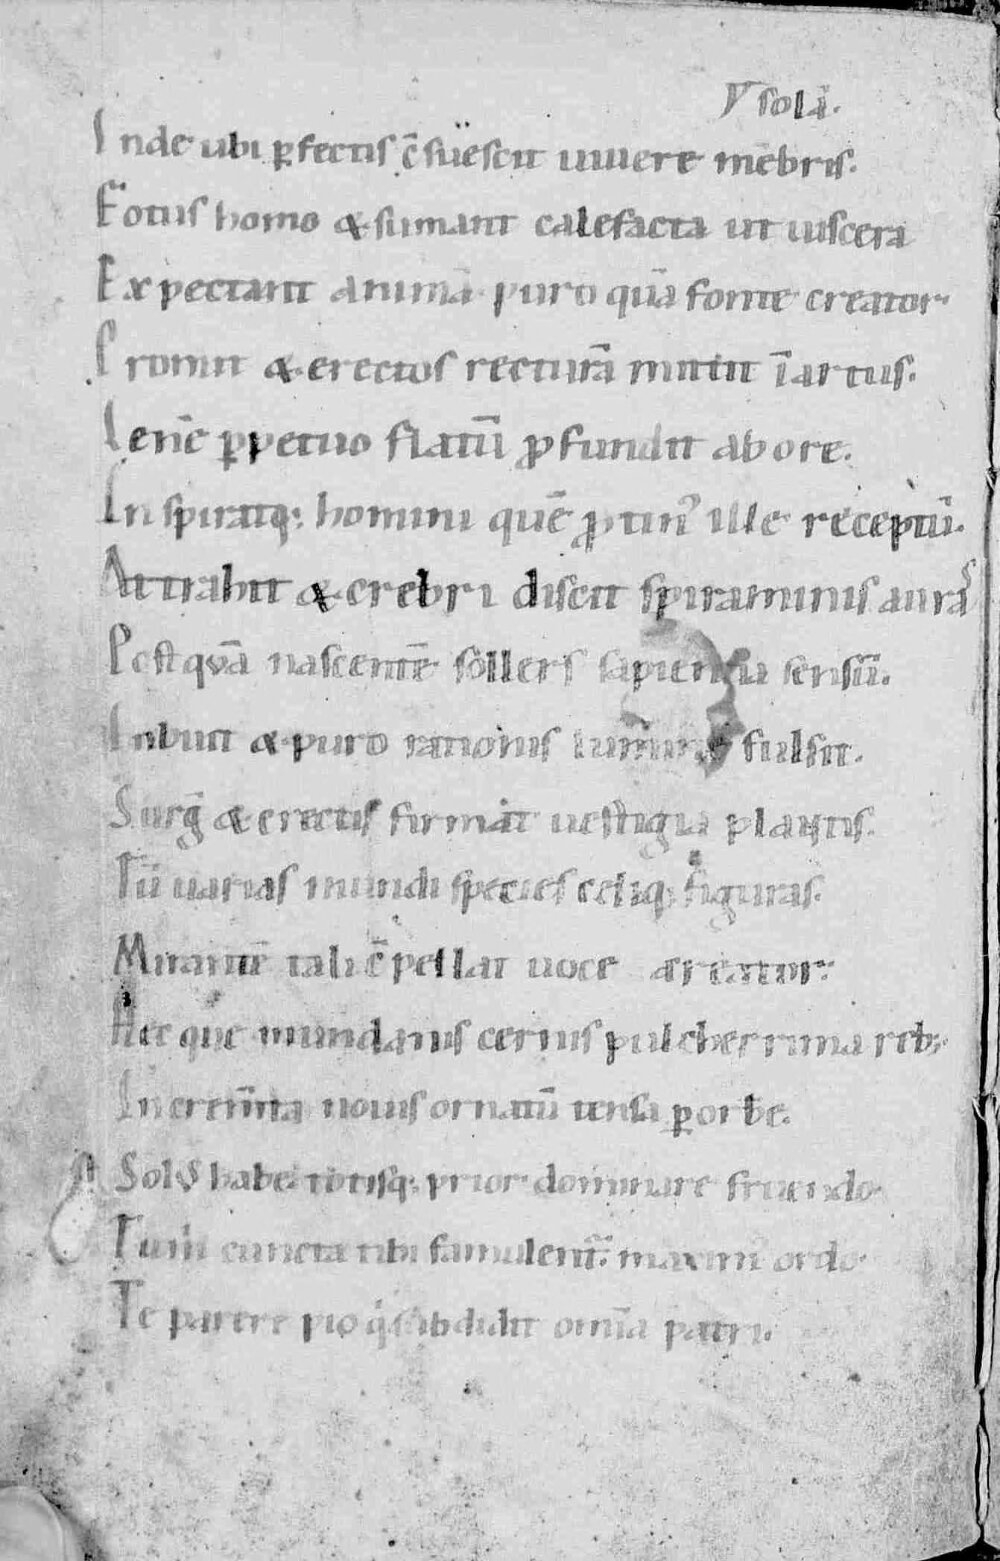 V sola.
Inde ubi ꝑfectis c̄suescit uiuere mēbris.
Fotus homo & sumant calefacta ut uiscera
Expectant animā puro quā fonte creator.
Promit & erectos recturā mittit īartus.
Lenē ꝑpetuo flatū ꝓfundit ab ore.
Inspiratq; homini quē ꝓtin᾽ ille receptū.
Attrahit & crebri discit spiraminis aurā
Postquā nascentē sollers sapientia sensū.
Inbuit & puro rationis lumine fulsit.
Surḡ & erectis firmat uestigia plantis.
Tū uarias mundi species celiq; figuras.
Mirantē tali c̄pellat uoce creator.
Hec que mundanis cernis pulcherrima reb;
Increm̄ta nouis ornatū tensa ꝑ orbe.
Solus habe totisq; prior dominare fruendo.
Tu m̄ cuncta tibi famulent᾽ maxim᾽ ordo.
Te parere pio q̇ subdidit omīa patri.